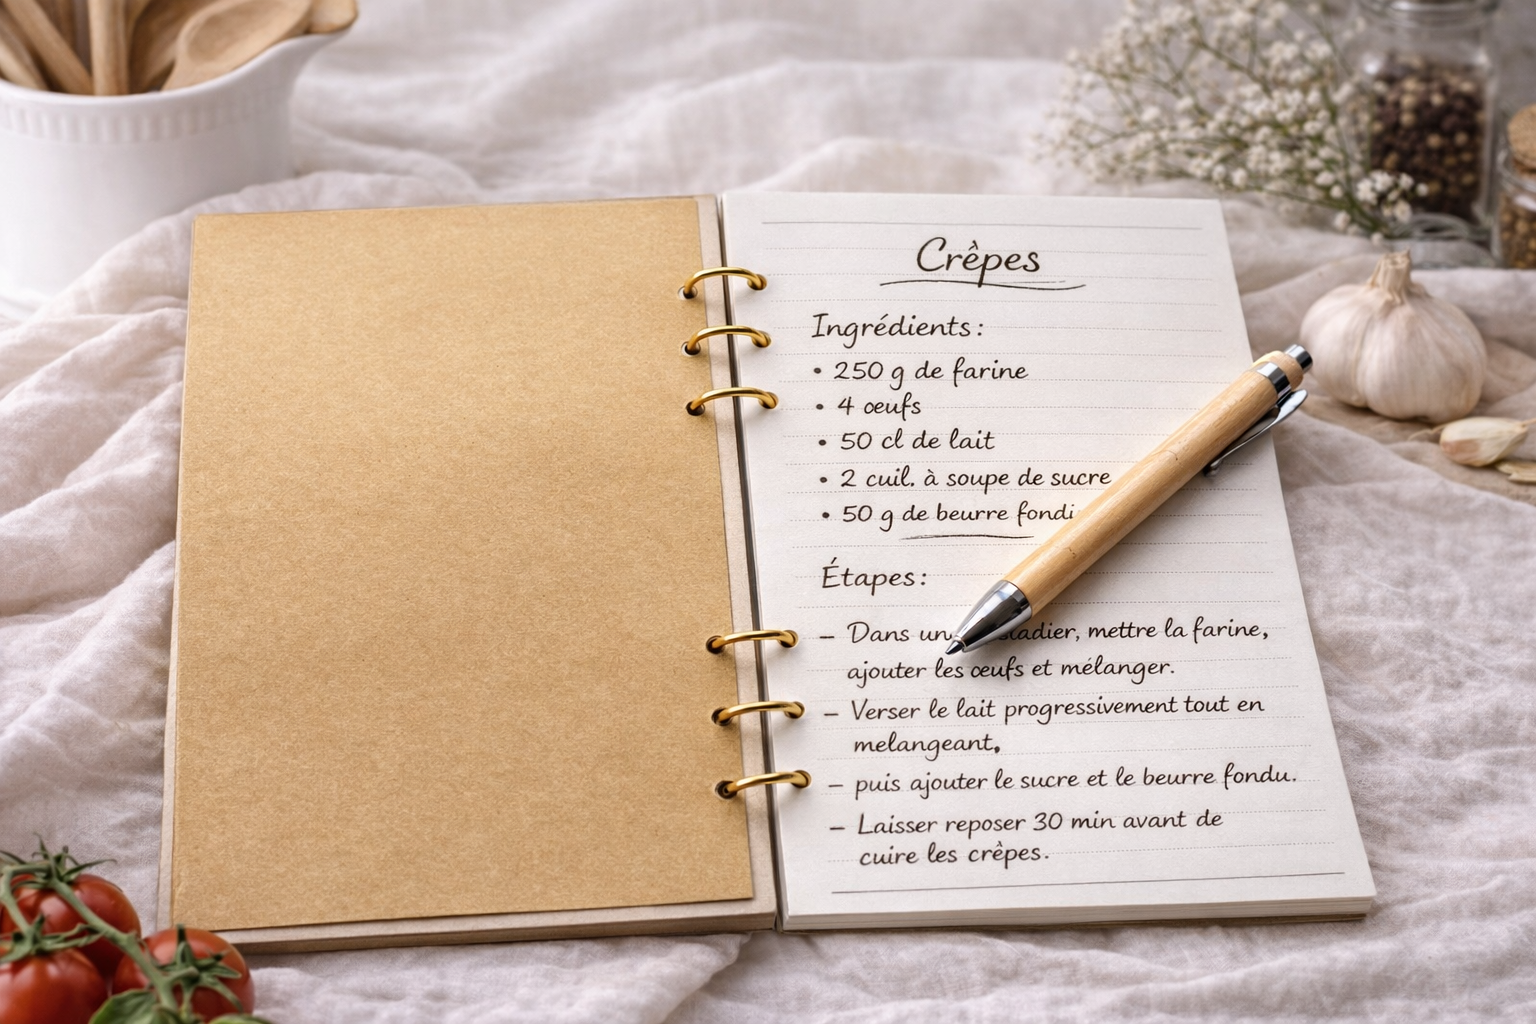 Crêpes
Ingrédients:
• 250 g de farine
• 4 œufs
• 50 cl de lait
• 2 cuil. à soupe de sucre
• 50 g de beurre
Étapes:
– Dans mettre la farine,
ajouter les œufs et mélanger.
– Verser le lait progressivement tout en
melangeant.
– puis ajouter le sucre et le beurre fondu.
– Laisser reposer 30 min avant de
cuire les crêpes.